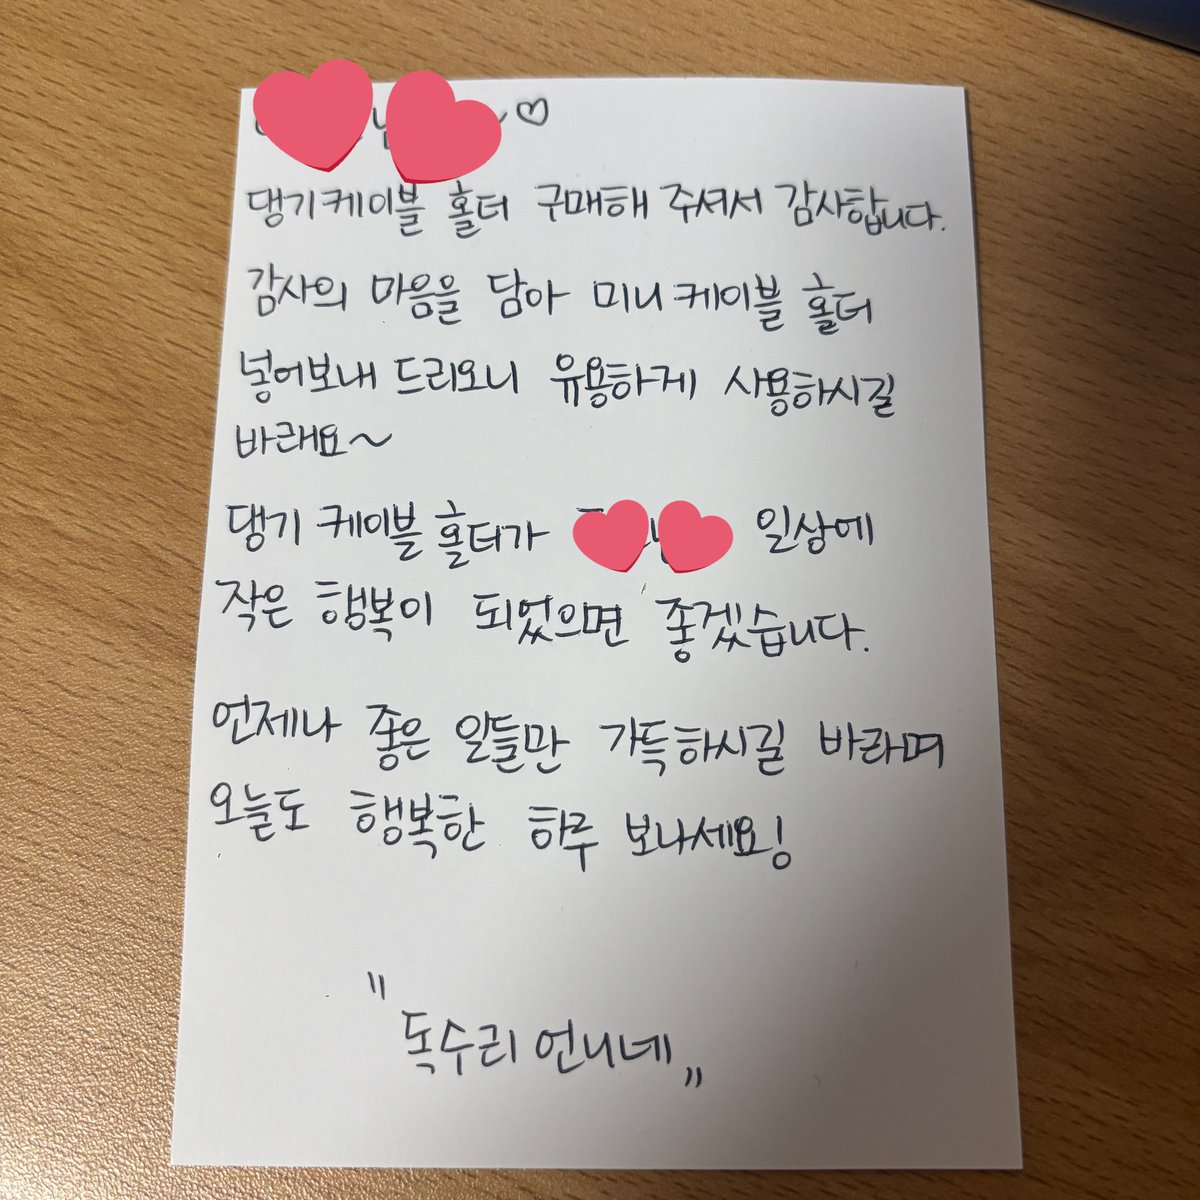 댕기케이블 홀더 구매해 주셔서 감사합니다.
감사의 마음을 담아 미니케이블 홀더
넣어보내 드리오니 유용하게 사용하시길
바래요~
댕기 케이블 홀더가 일상에
작은 행복이 되었으면 좋겠습니다.
언제나 좋은 일들만 가득하시길 바라며
오늘도 행복한 하루 보나세요!
"독수리 언니네"